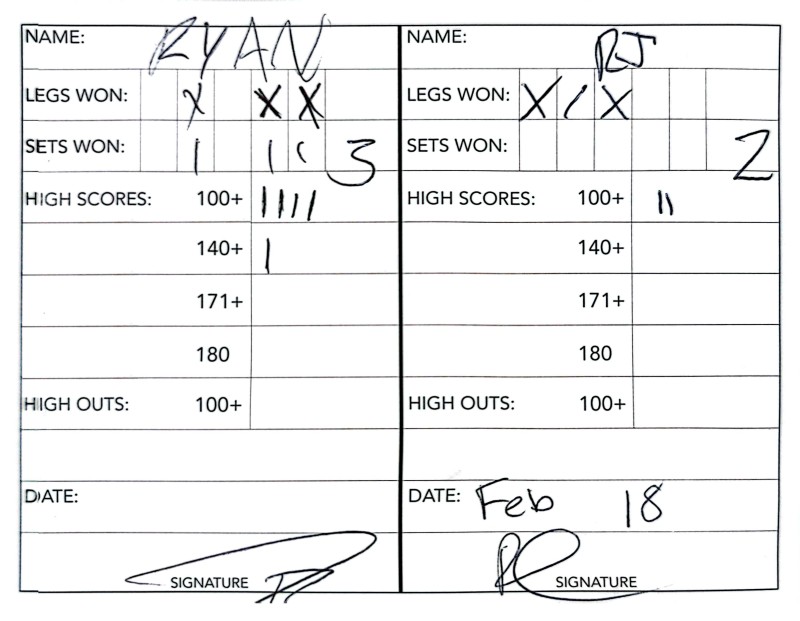 NAME: RYAN
LEGS WON: X X X
SETS WON: 1 1 1 3
HIGH SCORES: 100+ IIII
140+ I
171+
180
HIGH OUTS: 100+
DATE:
SIGNATURE
NAME: RJ
LEGS WON: X / X
SETS WON: 2
HIGH SCORES: 100+ II
140+
171+
180
HIGH OUTS: 100+
DATE: Feb 18
SIGNATURE